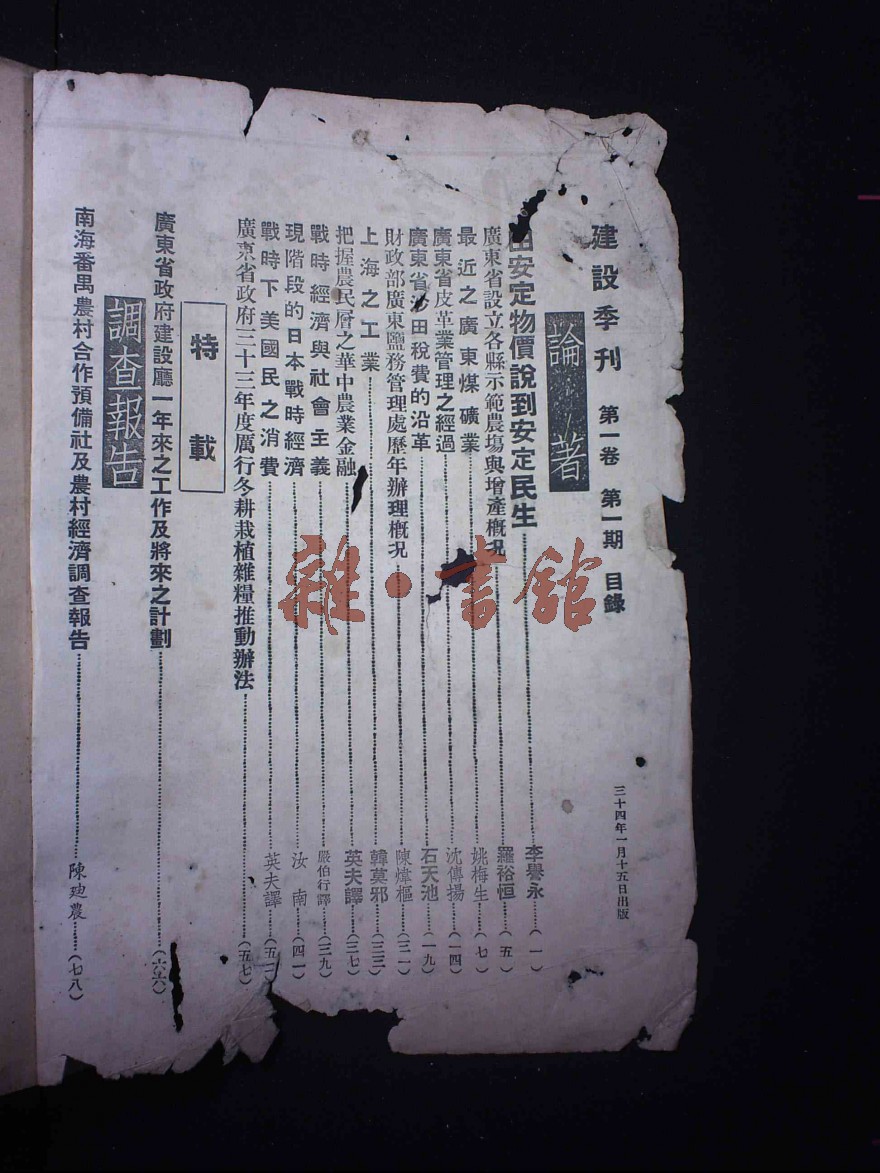 建設季刊 第一卷 第一期 目錄
三十四年一月十五日出版
論著
由安定物價說到安定民生……李譽永……(一)
廣東省設立各縣示範農塲與增產概况……羅裕恒……(五)
最近之廣東煤礦業……姚梅生……(七)
廣東省皮革業管理之經過……沈傳揚……(一四)
廣東省沙田稅費的沿革……石天池……(一九)
財政部廣東鹽務管理處歷年辦理概况……陳煒樞……(三一)
上海之工業……韓莫邪……(三三)
把握農民層之華中農業金融……英夫譯……(三七)
戰時經濟與社會主義……嚴伯行譯……(三九)
現階段的日本戰時經濟……汝南……(四一)
戰時下美國民之消費……英夫譯……(五一)
廣東省政府三十三年度厲行冬耕栽植雜糧推動辦法……(五七)
特載
廣東省政府建設廳一年來之工作及將來之計劃……(六六)
調查報告
南海番禺農村合作預備社及農村經濟調查報告……陳廸農……(七八)
雜·書館